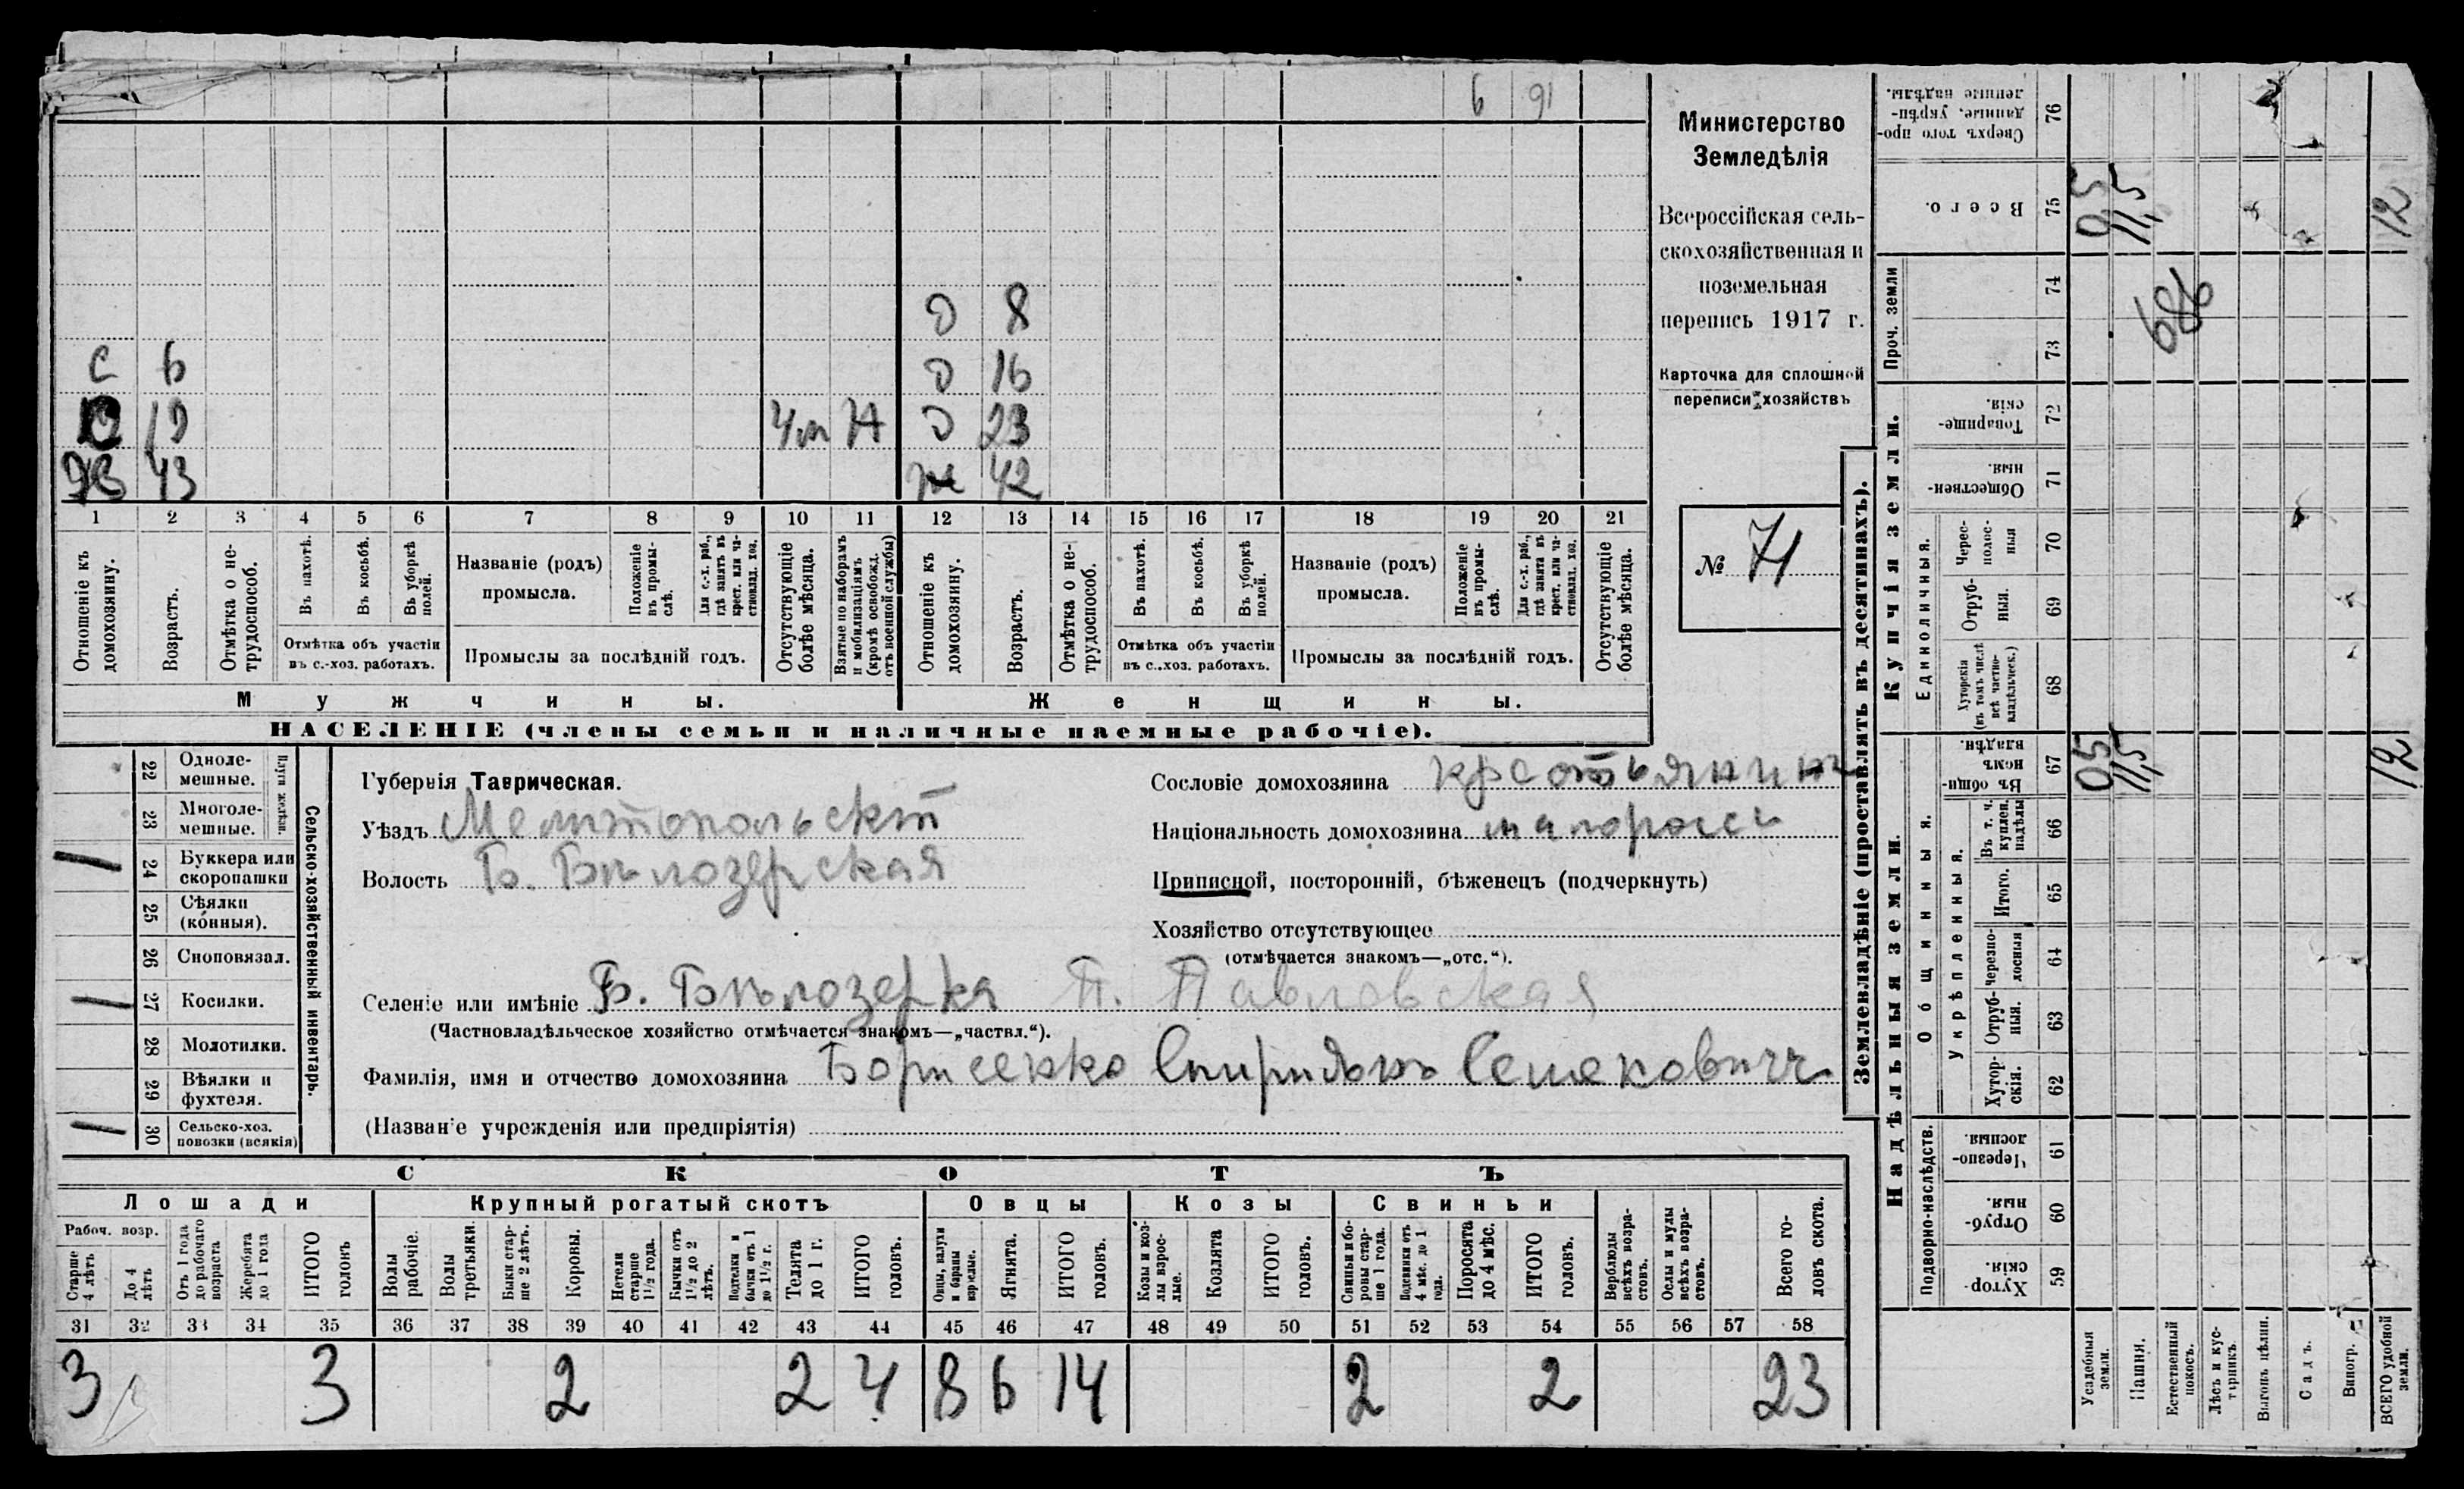 6 91
Министерство
Земледѣлія
Всероссійская сель-
скохозяйственная и
поземельная
перепись 1917 г.
Карточка для сплошной
переписи хозяйствъ
№ 71
Д 8
С 6 Д 16
19 Д 23
43 же 42
1 2 3 4 5 6 7 8 9 10 11 12 13 14 15 16 17 18 19 20 21
Отношеніе къ домохозяину.
Возрастъ.
Отмѣтка о не-трудоспособ.
Въ пахотѣ.
Въ косьбѣ.
Въ уборкѣ полей.
Отмѣтка объ участіи
въ с.-хоз. работахъ.
Названіе (родъ)
промысла.
Положеніе въ промы-слѣ.
Для с.-х. раб., гдѣ занятъ въ крест. или ча-стновлад. хоз.
Промыслы за послѣдній годъ.
Отсутствующіе болѣе мѣсяца.
Взятые по наборамъ и мобилизаціямъ (кромѣ освобожд. отъ военной службы)
Отношеніе къ домохозяину.
Возрастъ.
Отмѣтка о не-трудоспособ.
Въ пахотѣ.
Въ косьбѣ.
Въ уборкѣ полей.
Отмѣтка объ участіи
въ с.-хоз. работахъ.
Названіе (родъ)
промысла.
Положеніе въ промы-слѣ.
Для с.-х. раб., гдѣ занята въ крест. или ча-стновлад. хоз.
Промыслы за послѣдній годъ.
Отсутствующіе болѣе мѣсяца.
Мужчины. Женщины.
НАСЕЛЕНІЕ (члены семьи и наличные наемные рабочіе).
Сельско-хозяйственный инвентарь.
Плуги желѣзн.
22 Одноле-мешные.
23 Многоле-мешные.
24 Буккера или скоропашки
25 Сѣялки (конныя).
26 Сноповязал.
27 Косилки.
28 Молотилки.
29 Вѣялки и фухтеля.
30 Сельско-хоз. повозки (всякія)
Губернія Таврическая.
Уѣздъ Мелитопольскій
Волость Б. Бѣлозерская
Сословіе домохозяина крестьянинъ
Національность домохозяина малоросси
Приписной, посторонній, бѣженецъ (подчеркнуть)
Хозяйство отсутствующее
(отмѣчается знакомъ—„отс.“).
Селеніе или имѣніе Б. Бѣлозерка П. Павловская
(Частновладѣльческое хозяйство отмѣчается знакомъ—„частвл.“).
Фамилія, имя и отчество домохозяина Борисенко Спиридонъ Семеновичъ
(Названіе учрежденія или предпріятія)
СКОТЪ
Лошади Крупный рогатый скотъ Овцы Козы Свиньи
Рабоч. возр.
Старше 4 лѣтъ
До 4 лѣтъ
Отъ 1 года до рабочаго возраста
Жеребята до 1 года
ИТОГО головъ
Волы рабочіе.
Волы третьяки.
Быки стар-ше 2 лѣтъ.
Коровы.
Нетели старше 1½ года.
Бычки отъ 1½ до 2 лѣтъ.
Подтелки и бычки отъ 1 до 1½ г.
Телята до 1 г.
ИТОГО головъ.
Овцы, валухи и бараны взрослые.
Ягнята.
ИТОГО головъ.
Козы и коз-лы взрос-лые.
Козлята
ИТОГО головъ.
Свиньи и бо-ровы стар-ше 1 года.
Подсвинки отъ 4 мѣс. до 1 года.
Поросята до 4 мѣс.
ИТОГО головъ.
Верблюды всѣхъ возра-стовъ.
Ослы и мулы всѣхъ возра-стовъ.
Всего го-ловъ скота.
31 32 33 34 35 36 37 38 39 40 41 42 43 44 45 46 47 48 49 50 51 52 53 54 55 56 57 58
3 3 2 2 4 8 6 14 2 2 23
Землевладѣніе (проставлять въ десятинахъ).
Надѣльныя земли. Купчія земли. Проч. земли
Подворно-наслѣдств.
Общинныя.
Укрѣпленныя.
Единоличныя.
59 Хутор-скія.
60 Отруб-ныя.
61 Черезпо-лосныя.
62 Хутор-скія.
63 Отруб-ныя.
64 Черезпо-лосныя
65 Итого.
66 Въ т. ч. куплен. надѣлы
67 Въ общин-номъ владѣн. 0,5 11,5 12
68 Хуторскія (въ томъ числѣ всѣ частно-владѣльческ.)
69 Отруб-ныя.
70 Черес-полос-ныя
71 Обществен-ныя.
72 Товарище-скія.
73
74
686
75 Всего. 0,5 11,5 12
76 Сверхъ того про-данные, укрѣп-ленные надѣлы.
Усадебныя земли.
Пашня.
Естественный покосъ.
Лѣсъ и кус-тарникъ.
Выгонъ цѣлин.
Садъ.
Виногр.
ВСЕГО удобной земли.